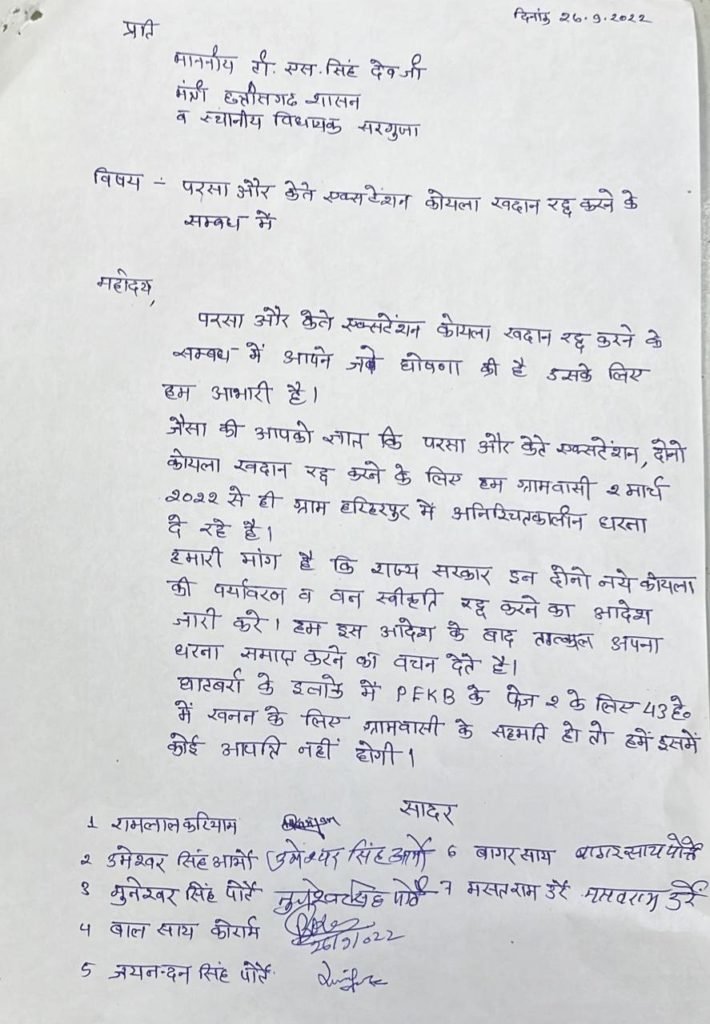 दिनांक 26.9.2022
प्रति
माननीय टी. एस. सिंह देव जी
मंत्री छत्तीसगढ शासन
व स्थानीय विधायक सरगुजा
विषय - परसा और केते एक्सटेंशन कोयला खदान रद्द करने के
सम्बध में
महोदय,
परसा और केते एक्सटेंशन कोयला खदान रद्द करने के
सम्बध में आपने जो घोषणा की है उसके लिए
हम आभारी है।
जैसा की आपको ज्ञात कि परसा और केते एक्सटेंशन, दोनो
कोयला खदान रद्द करने के लिए हम ग्रामवासी 2 मार्च
2022 से ही ग्राम हरिहरपुर में अनिश्चितकालीन धरना
दे रहे है।
हमारी मांग है कि राज्य सरकार इन दोनो नये कोयला
की पर्यावरण व वन स्वीकृति रद्द करने का आदेश
जारी करे। हम इस आदेश के बाद तत्काल अपना
धरना समाप्त करने का वचन देते है।
घाटबर्रा के इलाके में PEKB के फेज 2 के लिए 43 हे०
में खनन के लिए ग्रामवासी के सहमति हो तो हमें इसमें
कोई आपत्ति नहीं होगी।
सादर
1 रामलाल करियाम
2 उमेश्वर सिंह आर्मो उमेश्वर सिंह आर्मो 6 बागर साय बागर साय पोर्ते
3 मुनेश्वर सिंह पोर्ते मुनेश्वर सिंह पोर्ते 7 मसतराम उर्रे मसतराम उर्रे
4 बाल साय कोर्राम 26/9/022
5 जयनन्दन सिंह पोर्ते